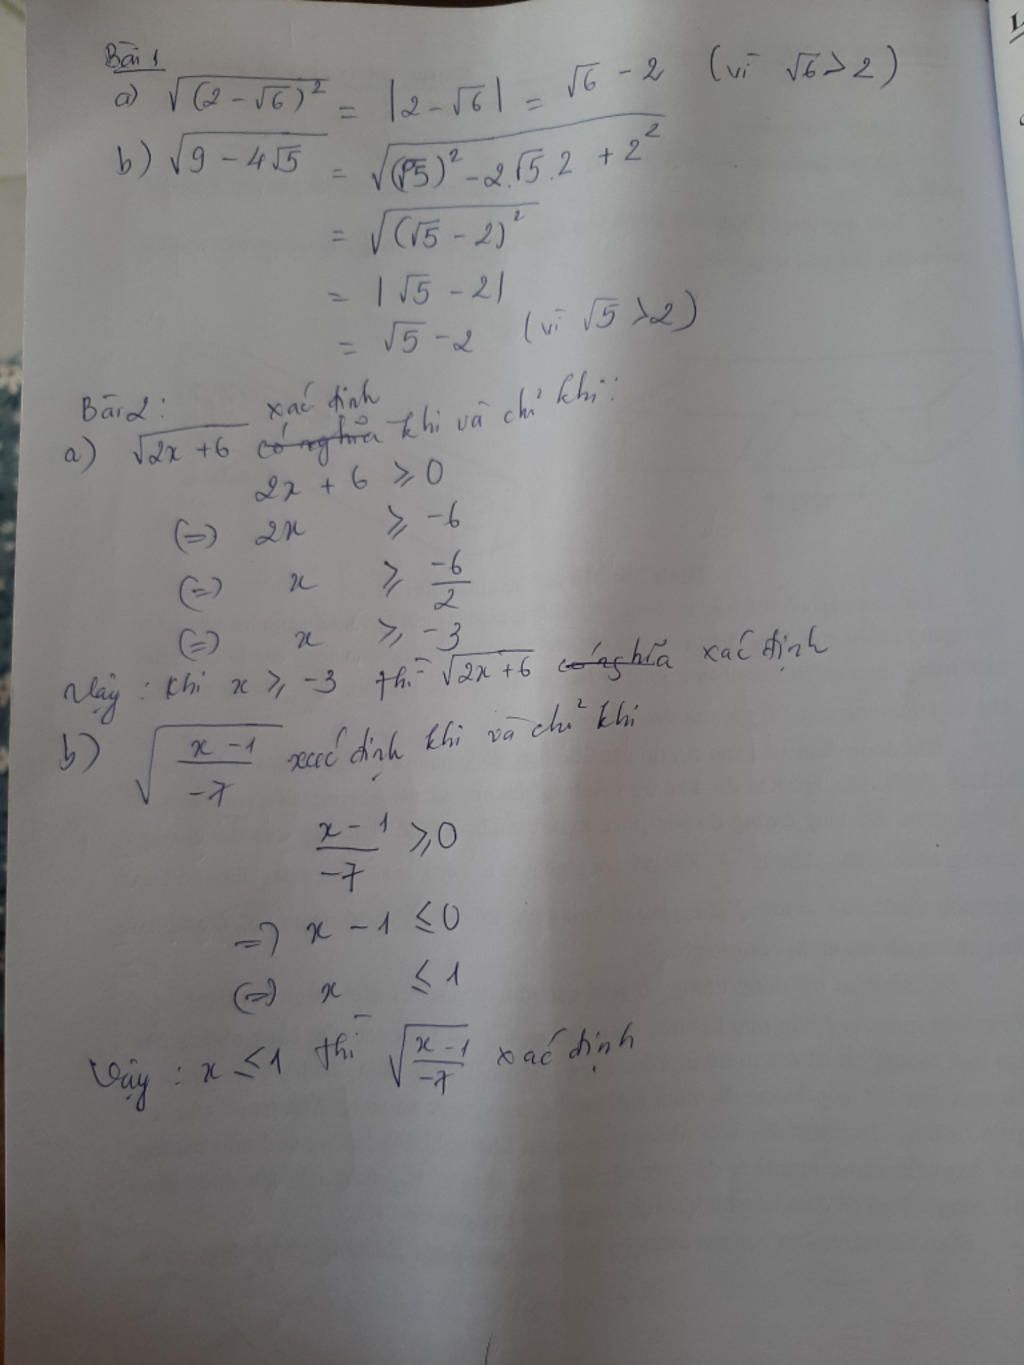 Bài 1
a) √(2 - √6)² = |2 - √6| = √6 - 2 (vì √6 > 2)
b) √9 - 4√5 = √(√5)² - 2.√5.2 + 2²
= √(√5 - 2)²
= |√5 - 2|
= √5 - 2 (vì √5 > 2)
Bài 2:
a) √2x + 6 có nghĩa xác định khi và chỉ khi:
2x + 6 ⩾ 0
(=) 2x ⩾ -6
(=) x ⩾ -6/2
(=) x ⩾ -3
Vậy : khi x ⩾ -3 thì √2x + 6 có nghĩa xác định
b) √(x - 1)/-7 xác định khi và chỉ khi
(x - 1)/-7 ⩾ 0
=) x - 1 ≤ 0
(=) x ≤ 1
Vậy : x ≤ 1 thì √(x - 1)/-7 xác định